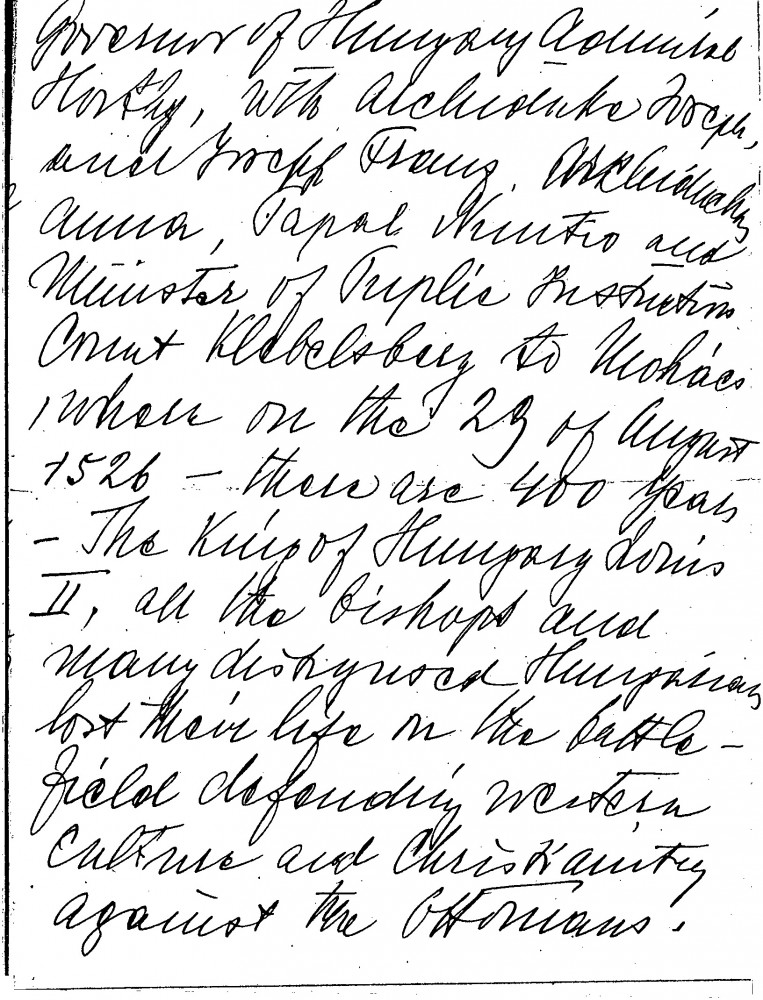 Governor of Hungary Admiral
Horthy, with Archiduke Joseph,
and Joseph Franz, Archiduchess
Anna, Papal Nuntio and
Minister of Public Instruction
Count Klebelsberg to Mohács
, where on the 29 of August
1526 – there are 400 years
– The King of Hungary Louis
II, all the Bishops and
many distinguised Hungarians
lost their life on the battle-
field defending western
culture and Christianity
against the Ottomans.